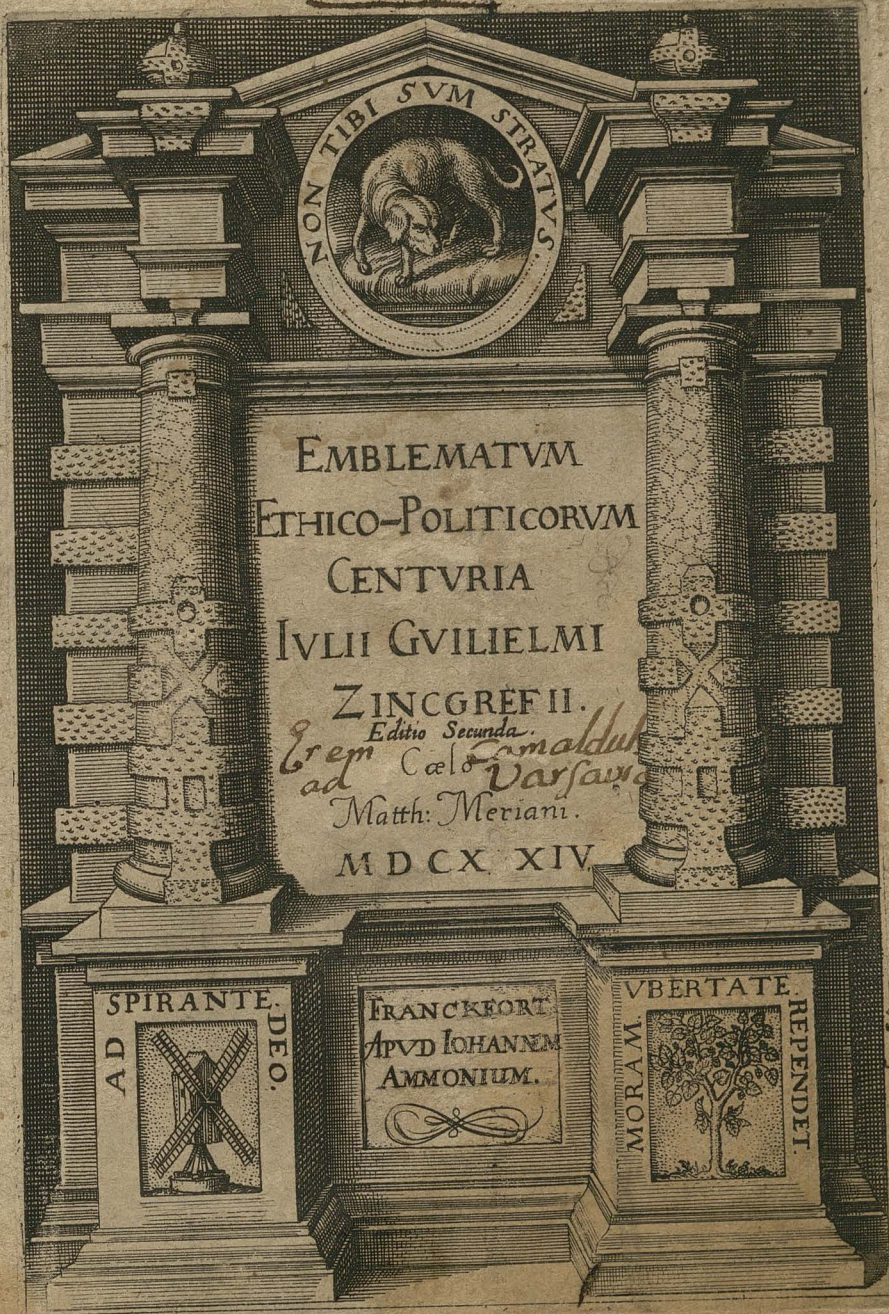 NON TIBI SVM STRATVS.
EMBLEMATVM
ETHICO-POLITICORVM
CENTVRIA
IVLII GVILIELMI
ZINCGREFII.
Editio Secunda.
Cælo
Erem Camalduh
ad Varsavia
Matth: Meriani.
MDCX XIV
AD SPIRANTE. DEO.
FRANCKFORT
APVD IOHANNEM
AMMONIUM.
MORAM. VBERTATE. REPENDET.